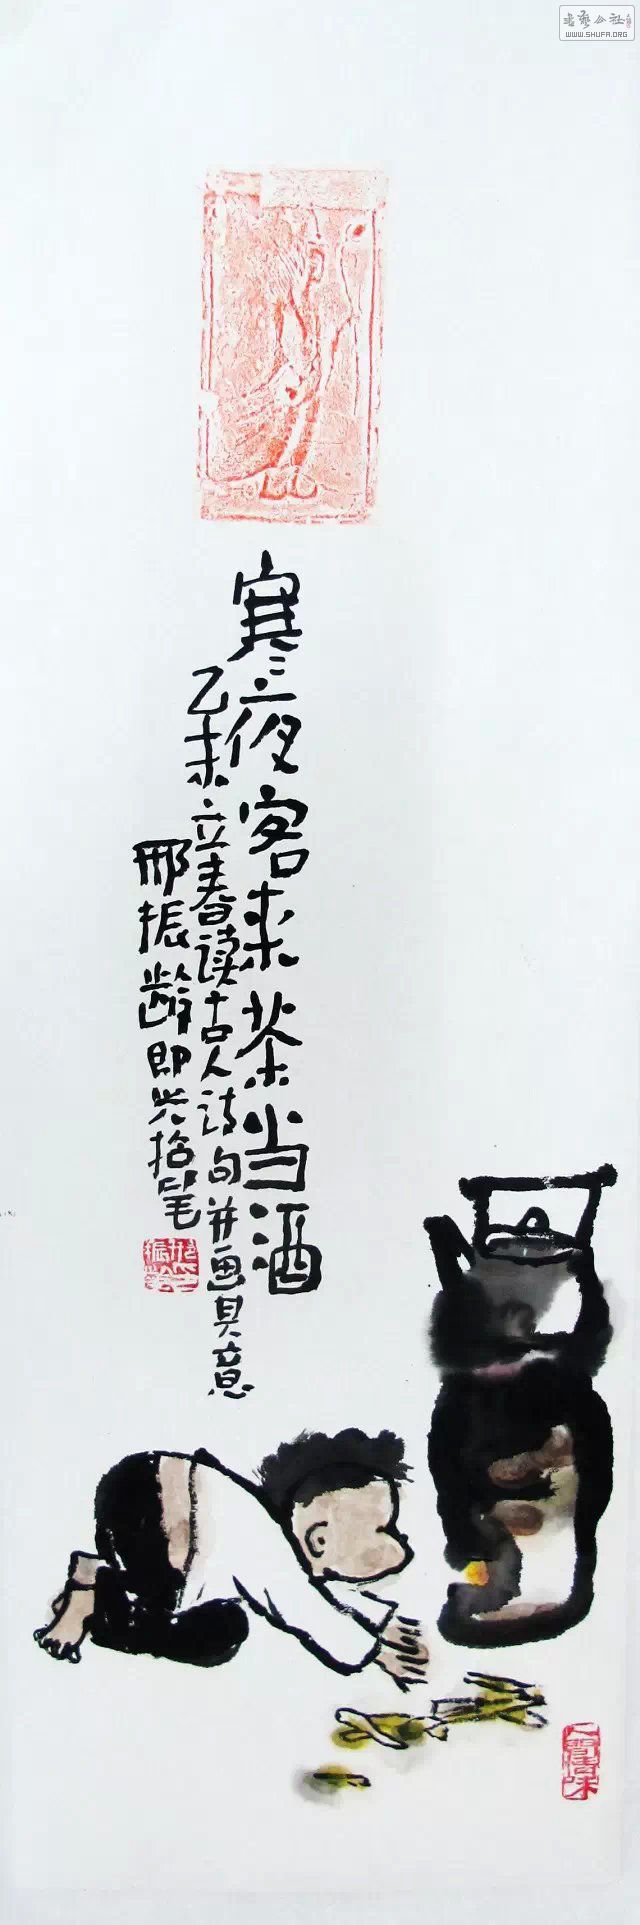 寒夜客来茶当酒
乙未立春读古人诗句并画其意
邢振龄即兴拾笔
邢振龄印
书艺公社
WWW.SHUFA.ORG